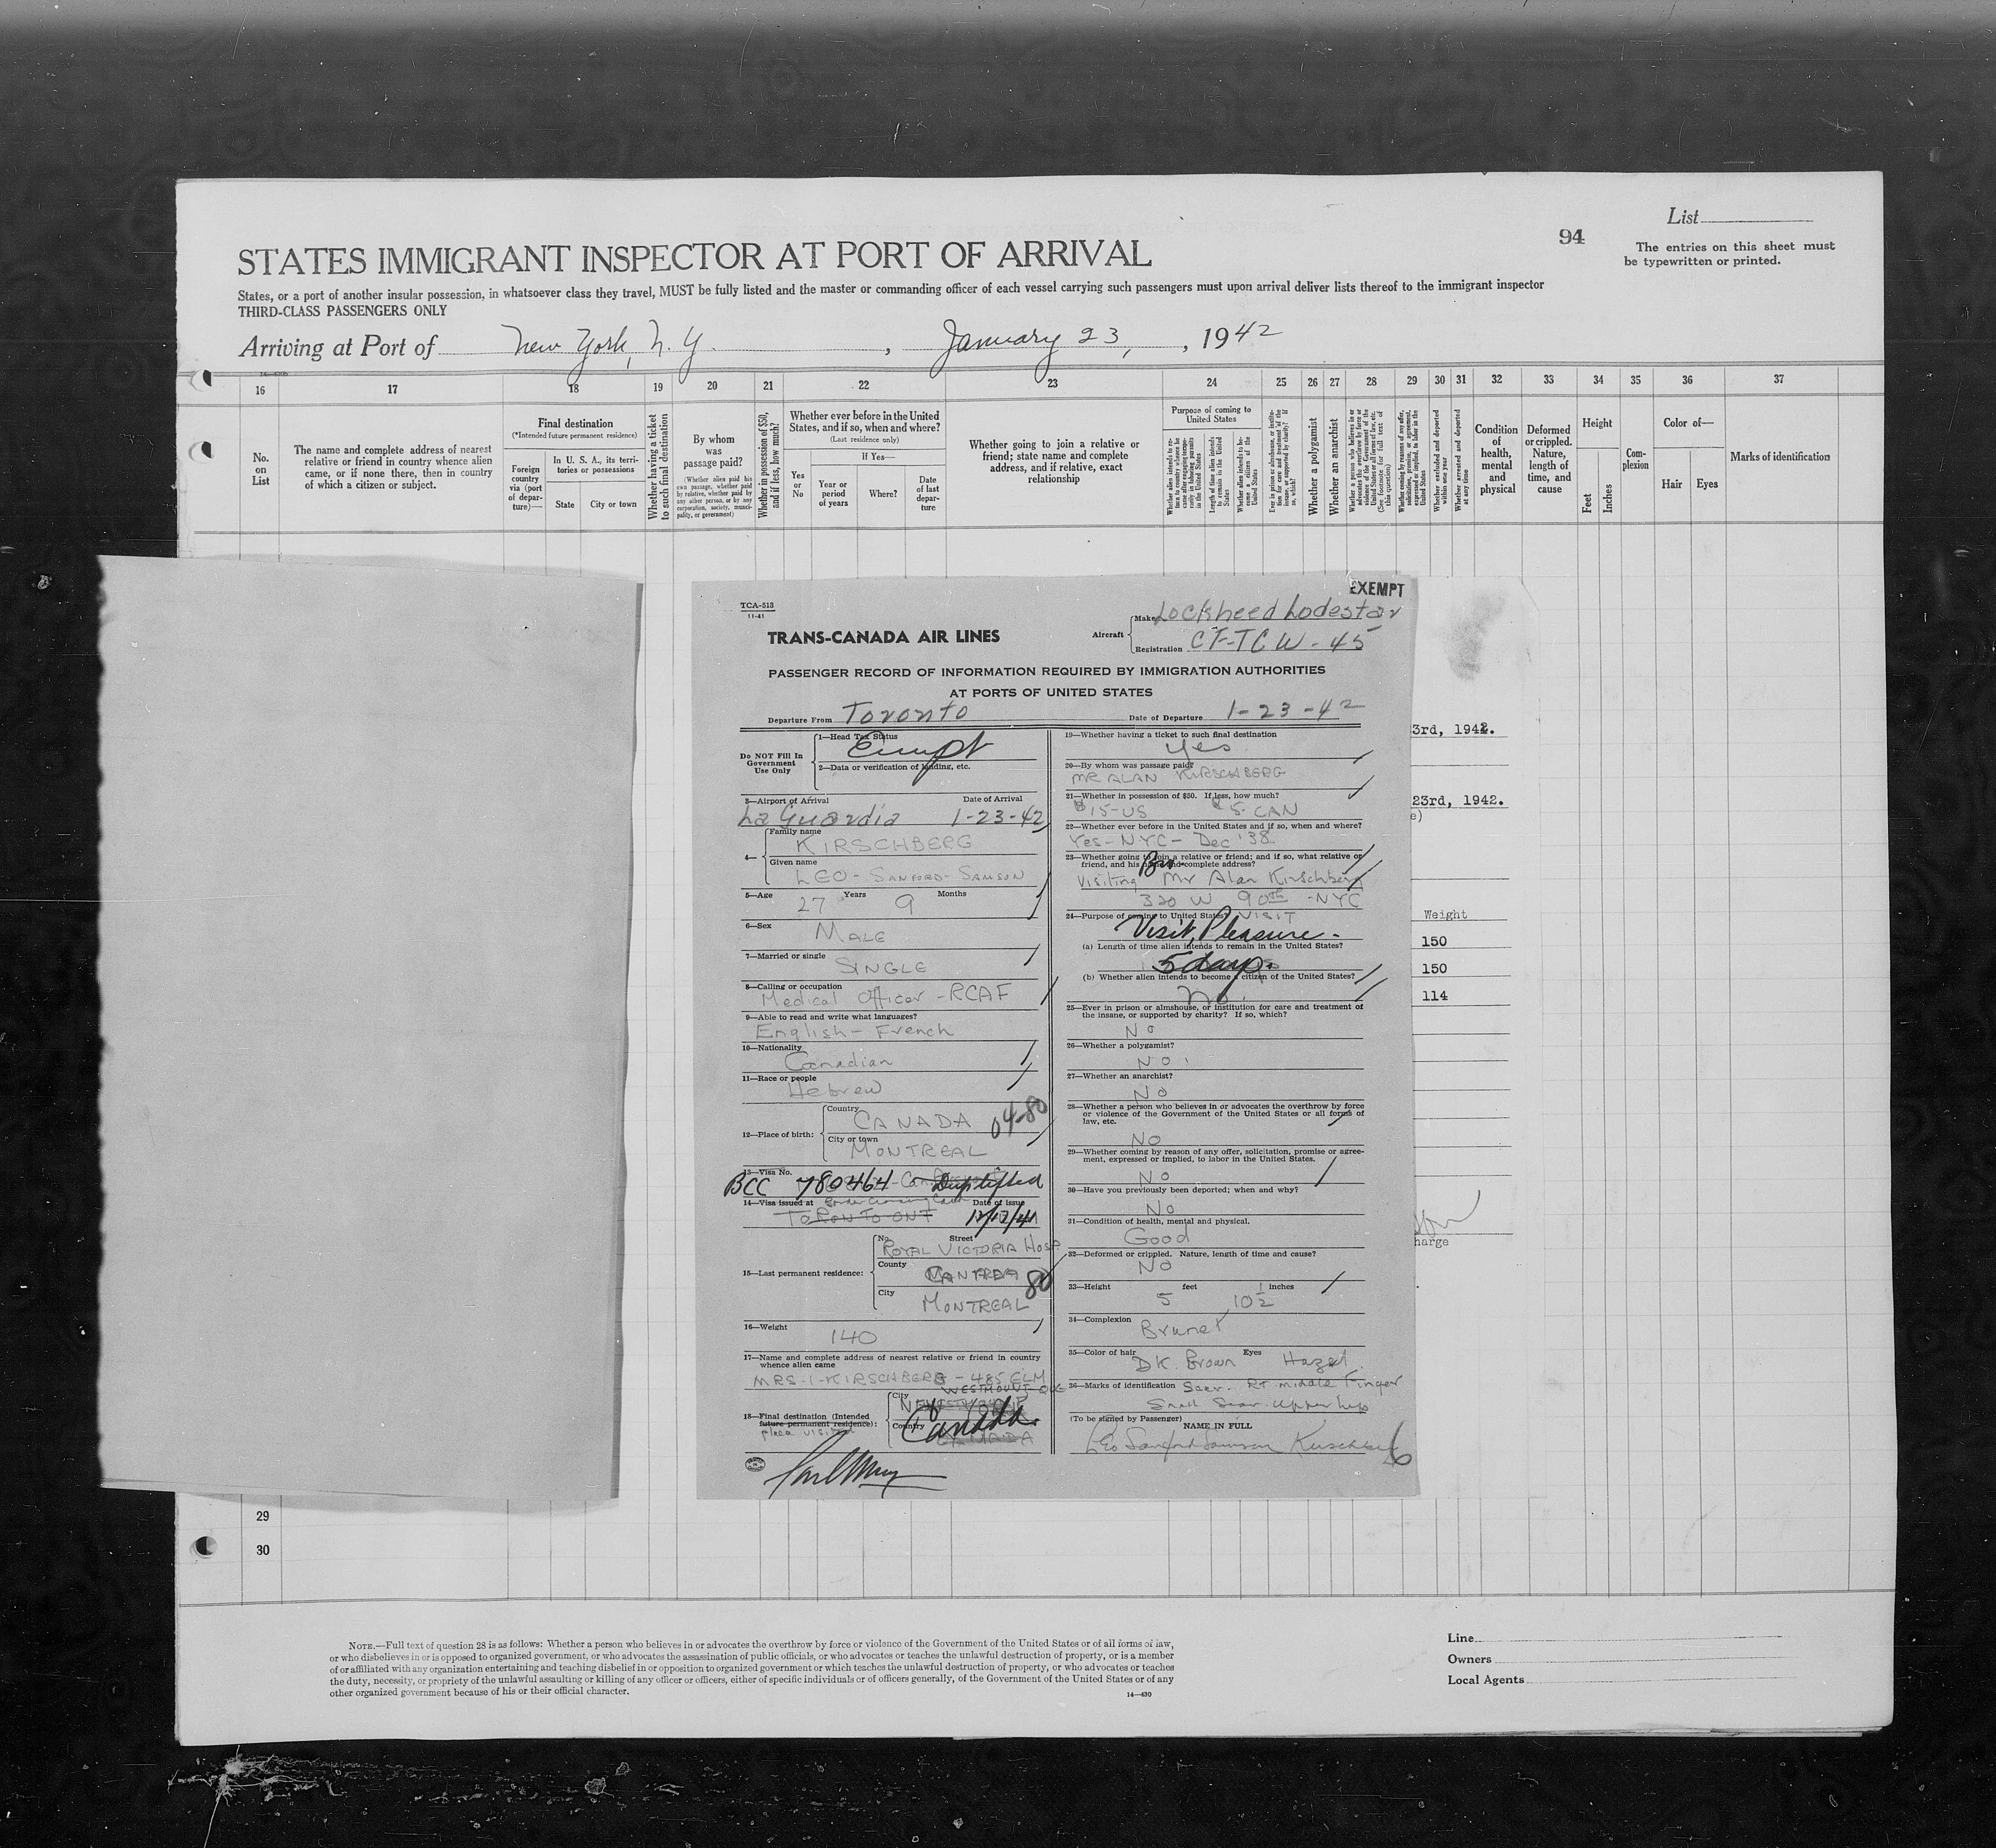 List
94
The entries on this sheet must
be typewritten or printed.
STATES IMMIGRANT INSPECTOR AT PORT OF ARRIVAL
States, or a port of another insular possession, in whatsoever class they travel, MUST be fully listed and the master or commanding officer of each vessel carrying such passengers must upon arrival deliver lists thereof to the immigrant inspector
THIRD-CLASS PASSENGERS ONLY
Arriving at Port of New York, N.Y. , January 23, , 1942
16 17 18 19 20 21 22 23 24 25 26 27 28 29 30 31 32 33 34 35 36 37
No.
on
List
The name and complete address of nearest
relative or friend in country whence alien
came, or if none there, then in country
of which a citizen or subject.
Final destination
(*Intended future permanent residence)
Foreign
country
via (port
of depar-
ture)—
In U. S. A., its terri-
tories or possessions
State
City or town
Whether having a ticket
to such final destination
By whom
was
passage paid?
(Whether alien paid his
own passage, whether paid
by relative, whether paid by
any other person, or by any
corporation, society, munici-
pality, or government)
Whether in possession of $50,
and if less, how much?
Whether ever before in the United
States, and if so, when and where?
(Last residence only)
Yes
or
No
If Yes—
Year or
period
of years
Where?
Date
of last
depar-
ture
Whether going to join a relative or
friend; state name and complete
address, and if relative, exact
relationship
Purpose of coming to
United States
Length of time alien intends
to remain in the United
States
Whether a polygamist
Whether an anarchist
Whether excluded and deported
within one year
Whether arrested and deported
at any time
Condition
of
health,
mental
and
physical
Deformed
or crippled.
Nature,
length of
time, and
cause
Height
Feet
Inches
Com-
plexion
Color of—
Hair
Eyes
Marks of identification
EXEMPT
TCA-513
11-41
TRANS-CANADA AIR LINES
Aircraft
Make Lockheed Lodestar
Registration CF-TCW-45
PASSENGER RECORD OF INFORMATION REQUIRED BY IMMIGRATION AUTHORITIES
AT PORTS OF UNITED STATES
Departure From Toronto Date of Departure 1-23-42
Do NOT Fill In
Government
Use Only
1—Head Tax Status
Exempt
2—Data or verification of landing, etc.
3—Airport of Arrival Date of Arrival
La Guardia 1-23-42
4—
Family name
KIRSCHBERG
Given name
LEO-SANFORD-SAMSON
5—Age 27 Years 9 Months
6—Sex
MALE
7—Married or single
SINGLE
8—Calling or occupation
Medical Officer-RCAF
9—Able to read and write what languages?
English-French
10—Nationality
Canadian
11—Race or people
Hebrew
12—Place of birth:
Country
CANADA 04-80
City or town
MONTREAL
13—Visa No.
BCC 780464
14—Visa issued at Date of issue
TORONTO ONT 12/12/41
15—Last permanent residence:
No. Street
ROYAL VICTORIA HOSP.
County
CANADA 80
City
MONTREAL
16—Weight
140
17—Name and complete address of nearest relative or friend in country
whence alien came
MRS-I-KIRSCHBERG - 485 ELM
WESTMOUNT QUE
18—Final destination (Intended
future permanent residence):
place visited
City
Country
Canada.
19—Whether having a ticket to such final destination
Yes
20—By whom was passage paid?
MR ALAN KIRSCHBERG
21—Whether in possession of $50. If less, how much?
$15-US $5-CAN
22—Whether ever before in the United States and if so, when and where?
Yes-NYC-Dec '38
23—Whether going to join a relative or friend; and if so, what relative or
friend, and his name and complete address?
Bro.
Visiting Mr Alan Kirschberg
320 W 90th -NYC
24—Purpose of coming to United States? VISIT
Visit, Pleasure.
(a) Length of time alien intends to remain in the United States?
5 days.
(b) Whether alien intends to become a citizen of the United States?
No.
25—Ever in prison or almshouse, or institution for care and treatment of
the insane, or supported by charity? If so, which?
No
26—Whether a polygamist?
No.
27—Whether an anarchist?
No
28—Whether a person who believes in or advocates the overthrow by force
or violence of the Government of the United States or all forms of
law, etc.
No
29—Whether coming by reason of any offer, solicitation, promise or agree-
ment, expressed or implied, to labor in the United States.
No
30—Have you previously been deported; when and why?
No
31—Condition of health, mental and physical.
Good
32—Deformed or crippled. Nature, length of time and cause?
No
33—Height 5 feet 10½ inches
34—Complexion
Brunet
35—Color of hair DK. Brown Eyes Hazel
36—Marks of identification Scar. Rt. middle Finger
Small Scar. Upper Lip
(To be signed by Passenger)
NAME IN FULL
Leo Sanford Samson Kirschberg
6
3rd, 1942.
23rd, 1942.
e)
Weight
150
150
114
harge
29
30
NOTE.—Full text of question 28 is as follows: Whether a person who believes in or advocates the overthrow by force or violence of the Government of the United States or of all forms of law,
or who disbelieves in or is opposed to organized government, or who advocates the assassination of public officials, or who advocates or teaches the unlawful destruction of property, or is a member
of or affiliated with any organization entertaining and teaching disbelief in or opposition to organized government or which teaches the unlawful destruction of property, or who advocates or teaches
the duty, necessity, or propriety of the unlawful assaulting or killing of any officer or officers, either of specific individuals or of officers generally, of the Government of the United States or of any
other organized government because of his or their official character.
14—430
Line
Owners
Local Agents